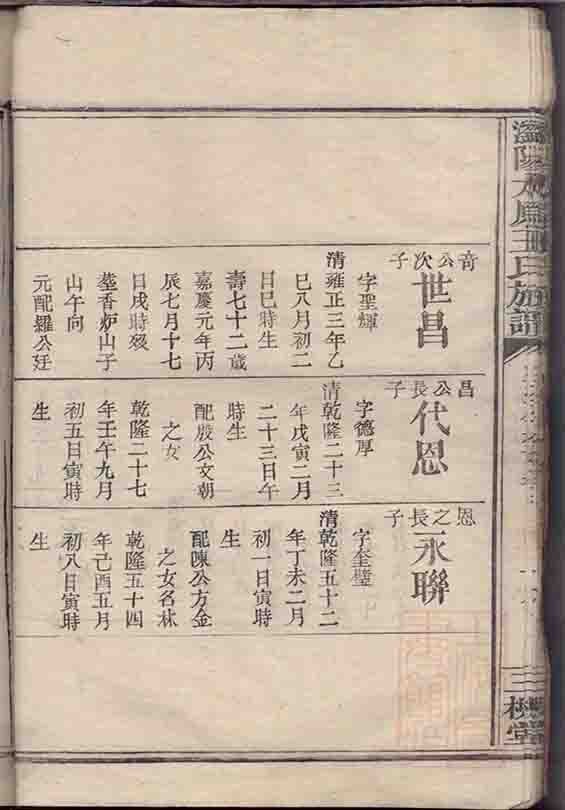 王氏族譜
三槐堂
音公次子
世昌
字聖輝
清雍正三年乙
巳八月初二
日巳時生
壽七十二歲
嘉慶元年丙
辰七月十七
日戌時歿
塟香炉山子
山午向
元配羅公廷
昌公長子
代恩
字德厚
清乾隆二十三
年戊寅二月
二十三日午
時生
配殷公文朝
之女
乾隆二十七
年壬午九月
初五日寅時
生
恩之長子
永聯
字奎璧
清乾隆五十二
年丁未二月
初一日寅時
生
配陳公方金
之女名林
乾隆五十四
年己酉五月
初八日寅時
生